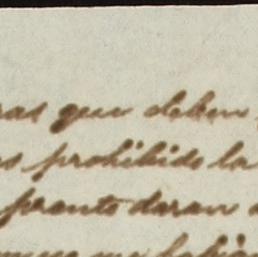 ras que deben
s prohibido la
pronto daran a